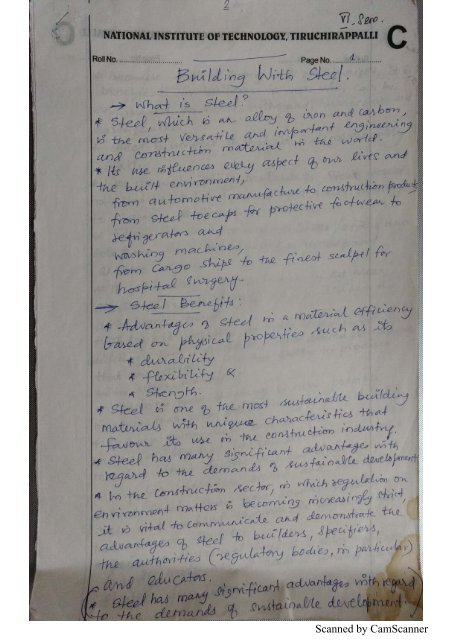 2
NATIONAL INSTITUTE OF TECHNOLOGY, TIRUCHIRAPPALLI
C
Roll No.
Page No. 1
Building With Steel.
→ What is Steel?
* Steel, which is an alloy of iron and carbon,
is the most versatile and important engineering
and construction material in the world.
* Its use influences every aspect of our lives and
the built environment,
from automotive manufacture to construction product,
from steel toecaps for protective footwear to
refrigerators and
washing machines,
from cargo ships to the finest scalpel for
hospital surgery.
→ Steel Benefits:
* Advantages of Steel in a material efficiency
based on physical properties such as its
* durability
* flexibility &
* Strength.
* Steel is one of the most sustainable building
materials with unique characteristics that
favour its use in the construction industry.
* Steel has many significant advantages with
regard to the demands of sustainable development
* In the construction sector, in which regulation on
environment matters is becoming increasingly strict,
it is vital to communicate and demonstrate the
advantages of steel to builders, specifiers,
the authorities (regulatory bodies, in particular)
and educators.
* Steel has many significant advantages with regard
to the demands of sustainable development.
Scanned by CamScanner